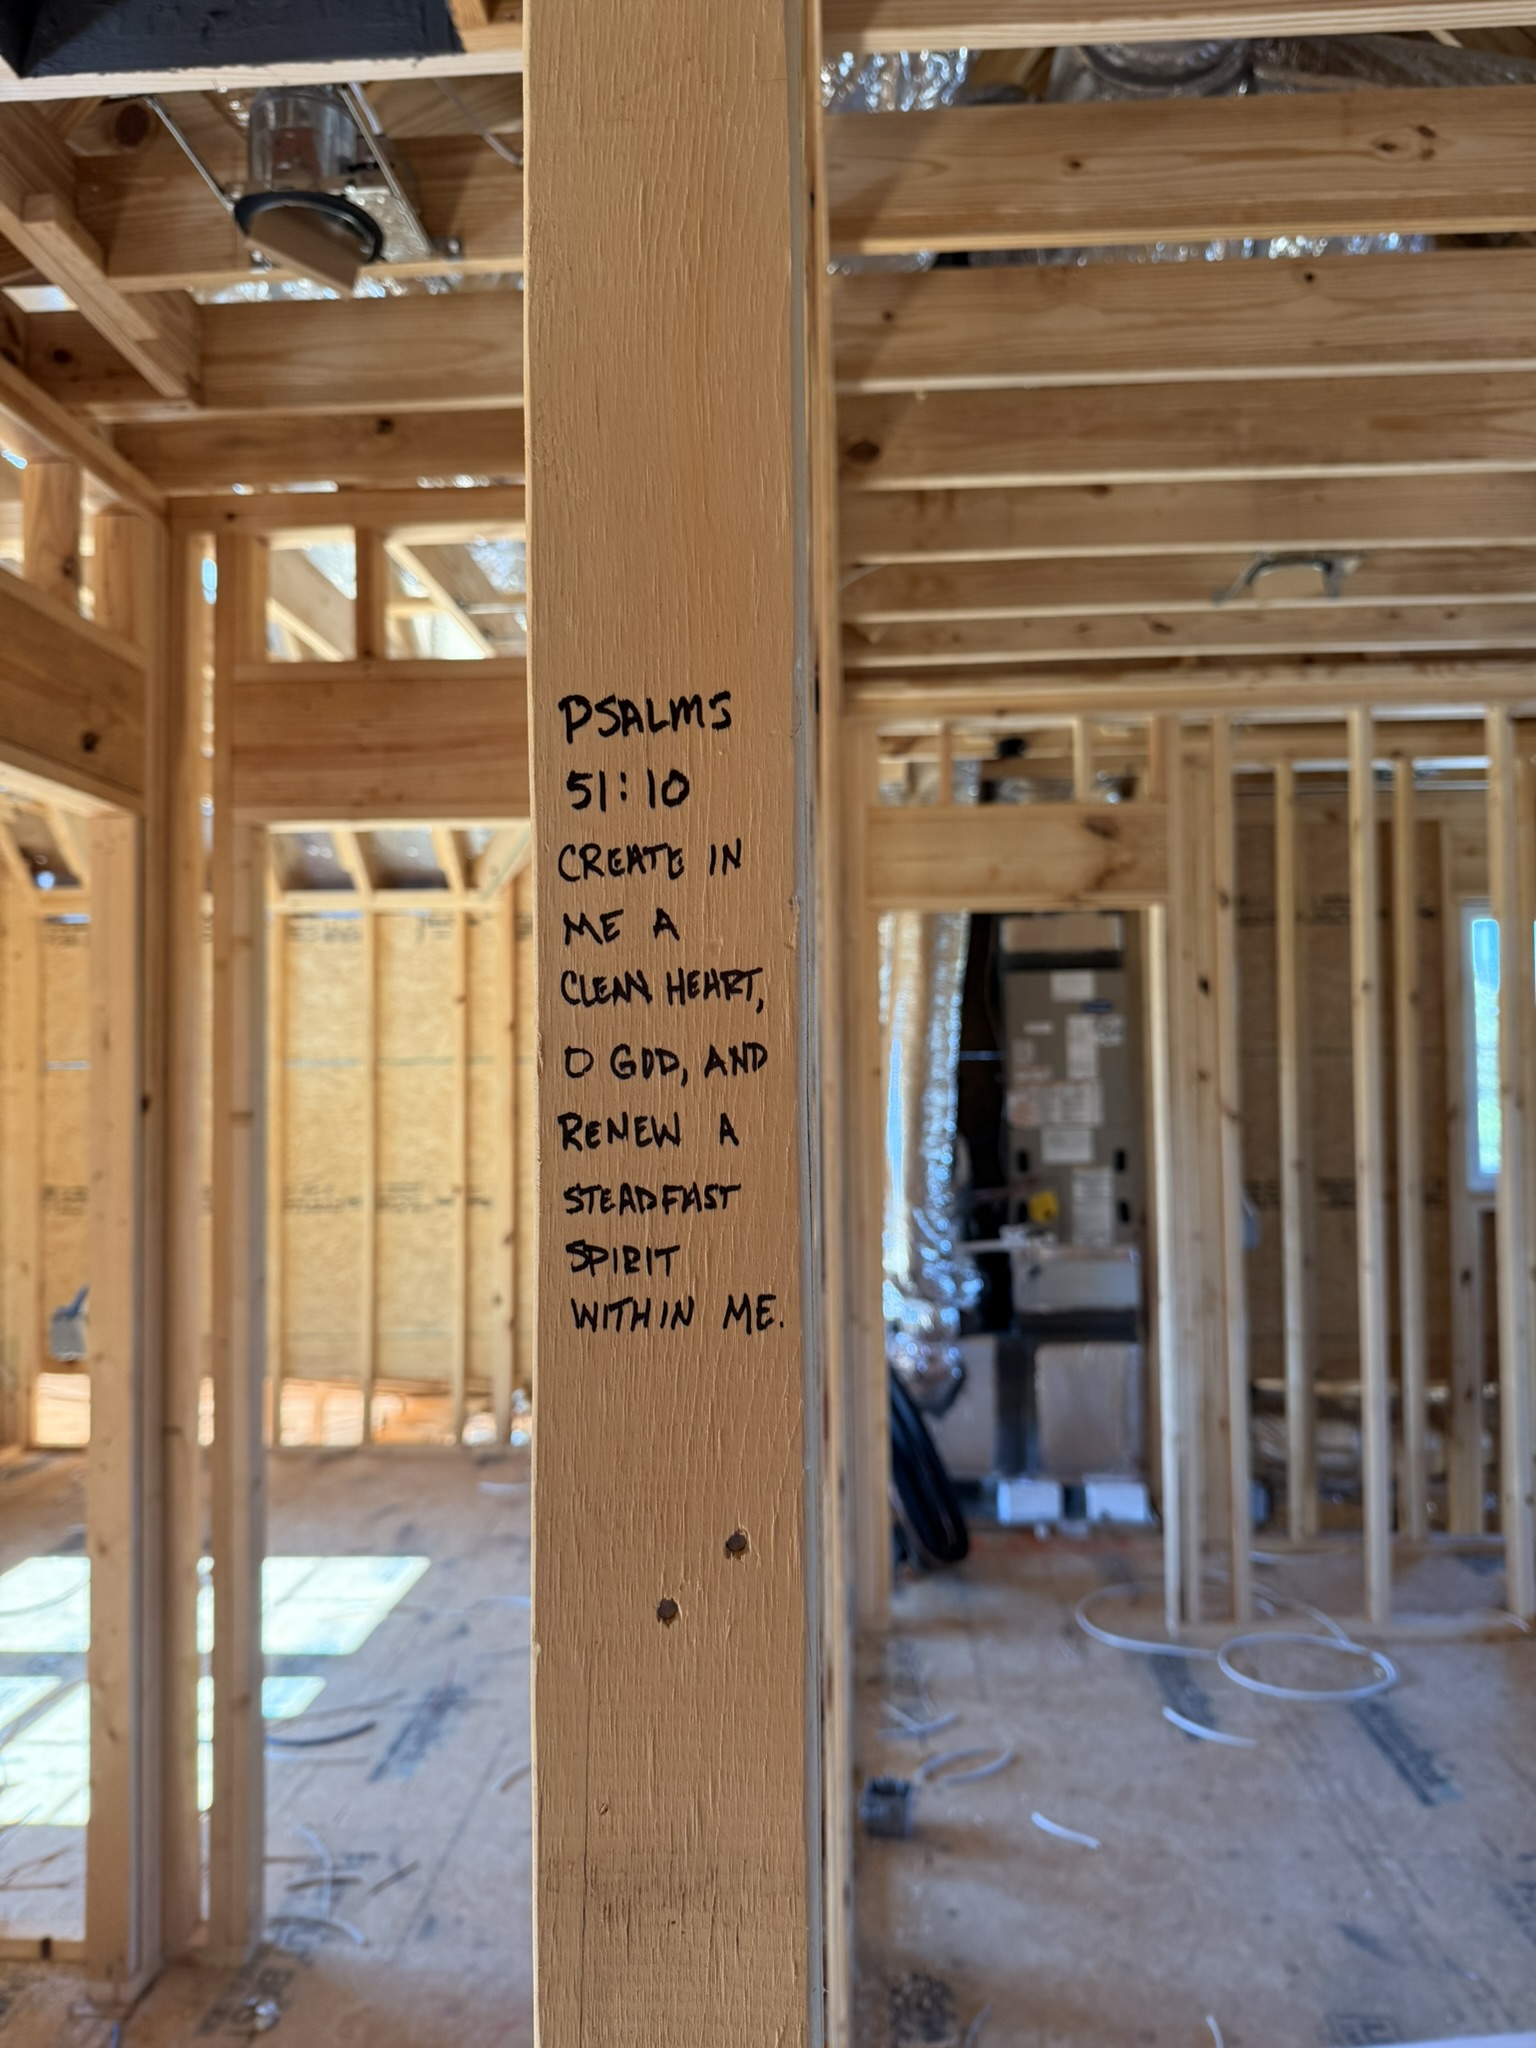 PSALMS
51:10
CREATE IN
ME A
CLEAN HEART,
O GOD, AND
RENEW A
STEADFAST
SPIRIT
WITHIN ME.